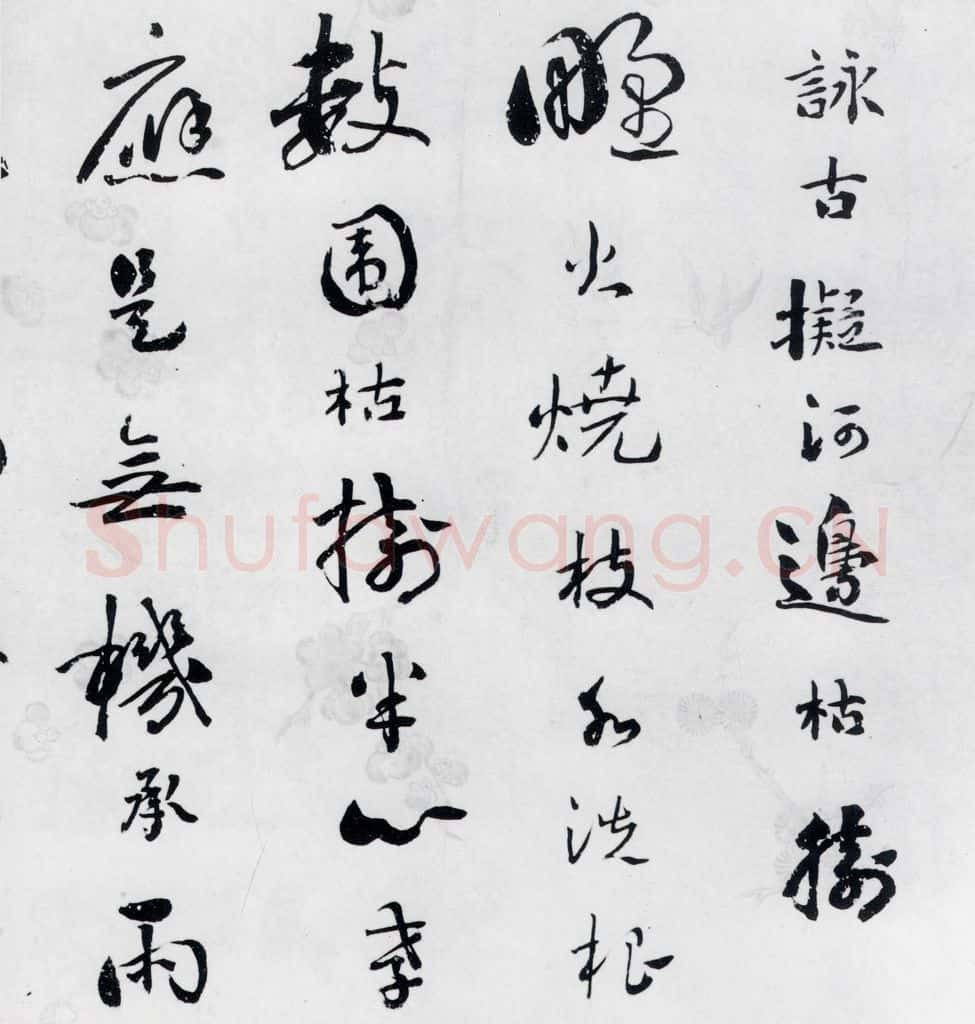 詠古擬河邊枯樹
野火燒枝水洗根
數圍枯樹半心存
應是無機承雨
Shufawang.CN